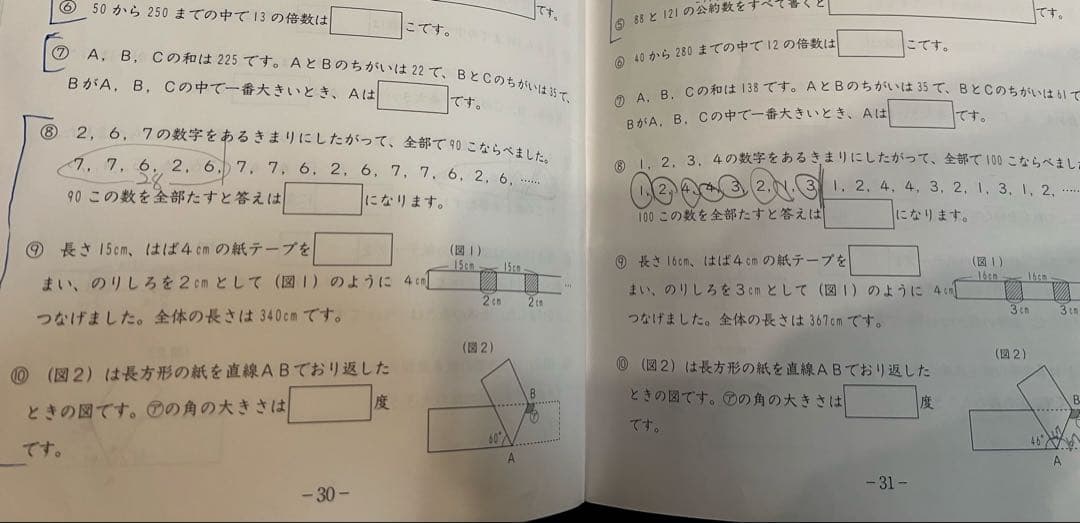 ⑥ 50から250までの中で13の倍数は□こです。
⑦ A，B，Cの和は225です。AとBのちがいは22で、BとCのちがいは35で、
BがA，B，Cの中で一番大きいとき、Aは□です。
⑧ 2，6，7の数字をあるきまりにしたがって、全部で90こならべました。
7，7，6，2，6，7，7，6，2，6，7，7，6，2，6，……
28
90この数を全部たすと答えは□になります。
⑨ 長さ15cm、はば4cmの紙テープを□
まい、のりしろを2cmとして（図1）のように
つなげました。全体の長さは340cmです。
（図1）
15cm 15cm
4cm
2cm 2cm
⑩ （図2）は長方形の紙を直線ABでおり返した
ときの図です。㋐の角の大きさは□度
です。
（図2）
B
㋐
60°
A
－30－
です。
⑤ 88と121の公約数をすべて書くと
です。
⑥ 40から280までの中で12の倍数は□こです。
⑦ A，B，Cの和は138です。AとBのちがいは35で、BとCのちがいは61で
BがA，B，Cの中で一番大きいとき、Aは□です。
⑧ 1，2，3，4の数字をあるきまりにしたがって、全部で100こならべまし
1，2，4，4，3，2，1，3，1，2，4，4，3，2，1，3，1，2，……
100この数を全部たすと答えは□になります。
⑨ 長さ16cm、はば4cmの紙テープを□
まい、のりしろを3cmとして（図1）のように
つなげました。全体の長さは367cmです。
（図1）
16cm 16cm
4cm
3cm 3cm
⑩ （図2）は長方形の紙を直線ABでおり返した
ときの図です。㋐の角の大きさは□度
です。
（図2）
B
46°
A
－31－